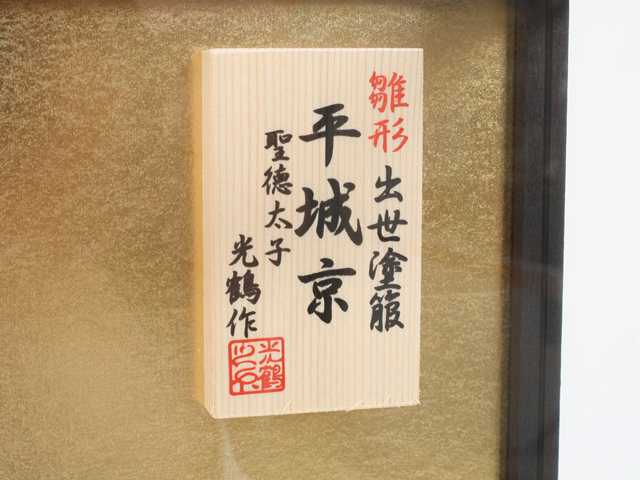 雛形 出世塗箙
平城京
聖德太子
光鶴作
光鶴